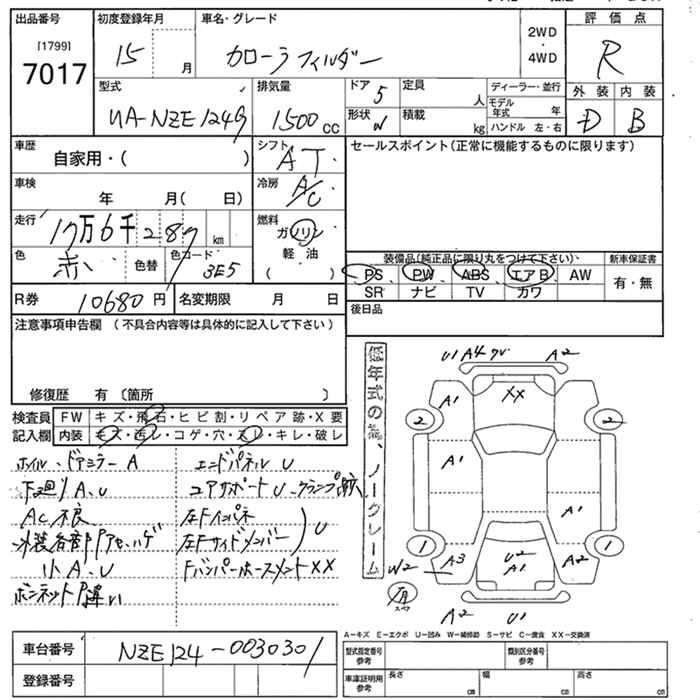 出品番号
[1799]
7017
初度登録年月
15
月
車名・グレード
カローラフィルダー
2WD
・
4WD
評価点
R
型式
UA-NZE124G
排気量
1500 CC
ドア 5
形状 W
定員
人
積載
kg
ディーラー・並行
モデル年式
年
ハンドル 左・右
外装 内装
D B
車歴
自家用・( )
シフト
AT
セールスポイント(正常に機能するものに限ります)
車検
年 月( 日)
冷房
A/C
走行
17万6千287 km
燃料
ガソリン
軽油
( )
色
赤
色替
色コード
3E5
装備品(純正品に限り丸をつけて下さい)
PS PW ABS エアB AW
SR ナビ TV カワ
新車保証書
有・無
R券
10680円
名変期限 月 日
後日品
注意事項申告欄 (不具合内容等は具体的に記入して下さい)
修復歴 有 〔箇所 〕
検査員記入欄
FW キズ・飛石・ヒビ割・リペア跡・X要
内装 キズ・汚レ・コゲ・穴・スレ・キレ・破レ
ホイル、ドアミラーA
下廻りA、U
AC不良
外装各部
小A、U
ボンネット違い
エンドパネルU
コアサポートU、クランプ跡
左Fインパネ
左Fサイドメンバー
U
FバンパーホースメントXX
低年式の為、ノークレーム
U1 A4
A2
A1
XX
2
2
A1
A1
1
1
A3
U2
A1
A2
W2
スペア
A2
U1
A－キズ E－エクボ U－凹み W－補修跡 S－サビ C－腐食 XX－交換済
車台番号
NZE124-0030301
登録番号
型式指定番号
参考
類別区分番号
参考
車庫証明用
参考
長さ
cm
幅
cm
高さ
cm